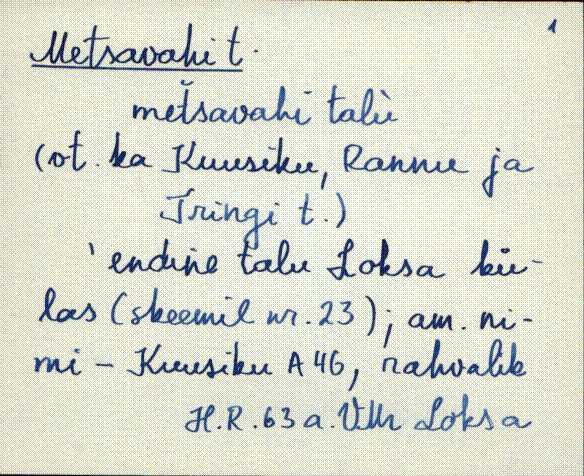 1
Metsavahi t.
metsavahi talù
(vt. ka Kuusiku, Rannu ja
Iringi t.)
'endine talu Loksa kü-
las (skeemil nr. 23); am. ni-
mi - Kuusiku A 46, rahvalik
H.R. 63 a. VMr Loksa